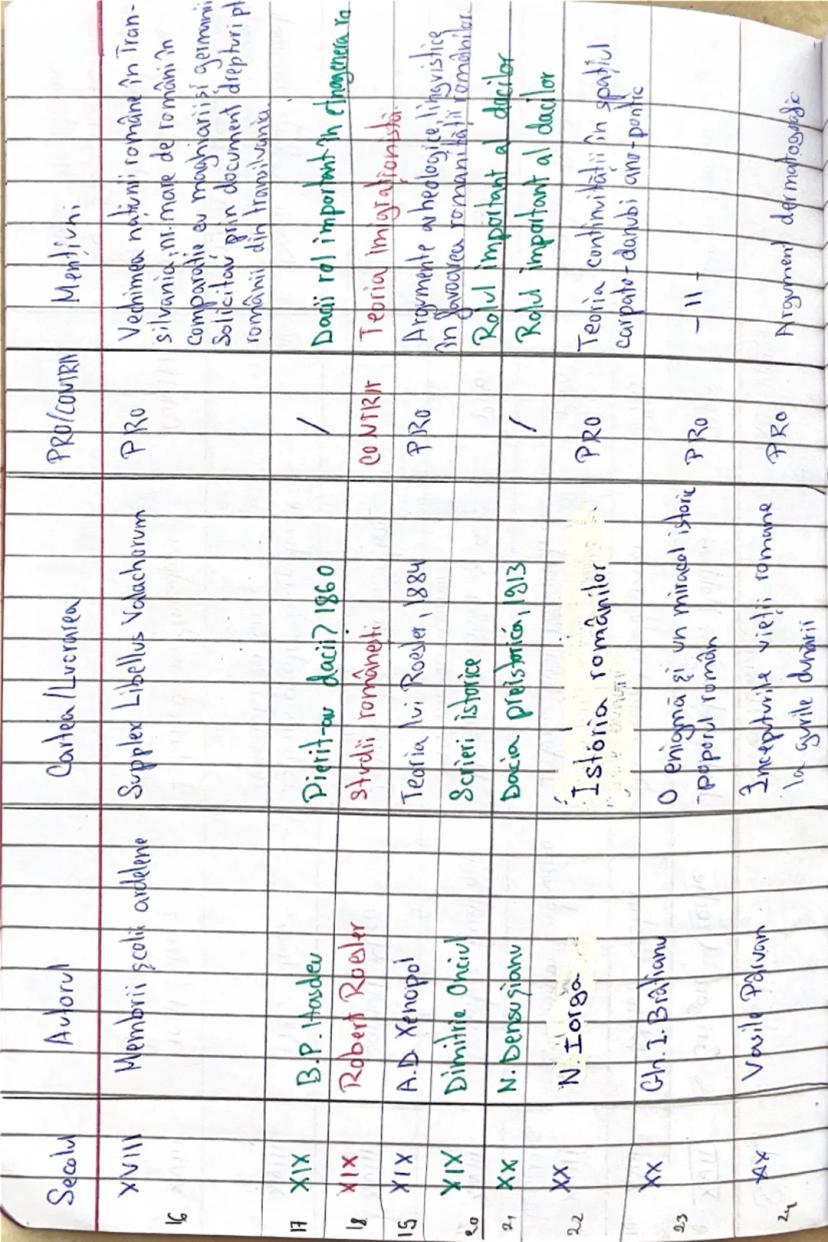 Secolul Autorul Cartea/Lucrarea PRO/CONTRA Mențiuni
16 XVIII Membrii școlii ardelene Supplex Libellus Valachorum PRO Vechimea națiunii române în Tran-
silvania; nr. mare de români în
comparație cu maghiarii și germanii
Solicitau prin document drepturi pt
românii din transilvania.
17 XIX B.P. Hasdeu Pierit-au dacii? 1860 / Dacii rol important în etnogeneza ro
18 XIX Robert Roesler Studii românești CONTRA Teoria imigraționistă.
XIX A.D. Xenopol Teoria lui Roesler, 1884 PRO Argumente arheologice, lingvistice
în favoarea romanității românilor.
20 XIX Dimitrie Onciul Scrieri istorice Rolul important al dacilor
21 XX N. Densușianu Dacia preistorica, 1913 / Rolul important al dacilor
22 XX N. Iorga Istoria românilor PRO Teoria continuității în spațiul
carpato-danubi ano-pontic
23 XX Gh. I. Brătianu O enigmă și un miracol istoric PRO -11-
-poporul român
24 XX Vasile Pârvan Începuturile vieții romane PRO Argument
la gurile dunării